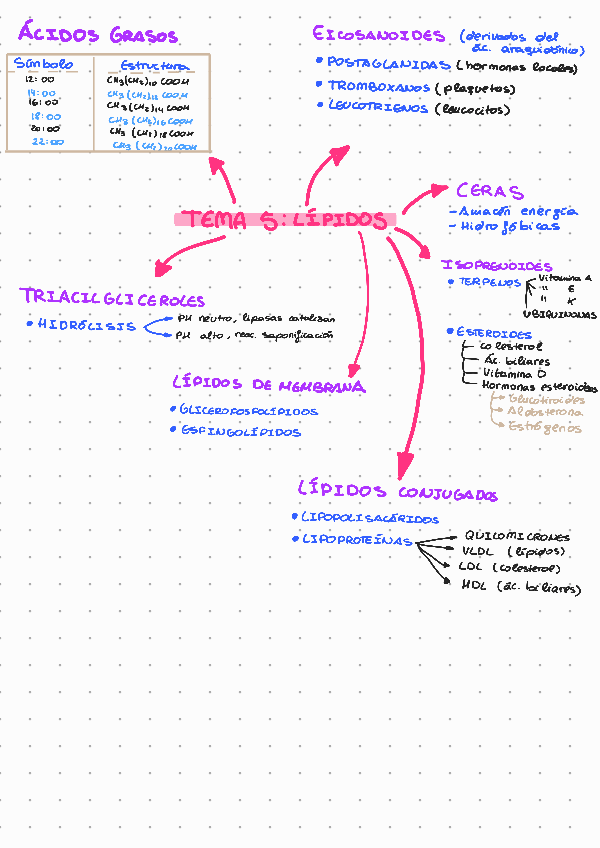 ÁCIDOS GRASOS
Símbolo Estructura
12:00 CH3(CH2)10 COOH
14:00 CH3(CH2)12 COOH
16:00 CH3(CH2)14 COOH
18:00 CH3(CH2)16 COOH
20:00 CH3(CH2)18 COOH
22:00 CH3(CH2)20 COOH
EICOSANOIDES (derivados del
ác. araquidónico)
• POSTAGLANIDAS (hormonas locales)
• TROMBOXANOS (plaquetas)
• LEUCOTRIENOS (leucocitos)
TEMA 5: LÍPIDOS
CERAS
- Amacén energía
- Hidrofóbicas
ISOPRENOIDES
• TERPENOS Vitamina A
" E
" K
UBIQUINONAS
• ESTEROIDES
colesterol
Ác. biliares
Vitamina D
Hormonas esteroides
Aldosterona
Estrógenos
TRIACILGLICEROLES
• HIDRÓLISIS
PH neutro, lipasas catalizan
PH alto, reac. saponificación
LÍPIDOS DE MEMBRANA
• GLICEROFOSFOLÍPIDOS
• ESFINGOLÍPIDOS
LÍPIDOS CONJUGADOS
• LIPOPOLISACÁRIDOS
• LIPOPROTEÍNAS
QUILOMICRONES
VLDL (lípidos)
LDL (colesterol)
HDL (ác. biliares)